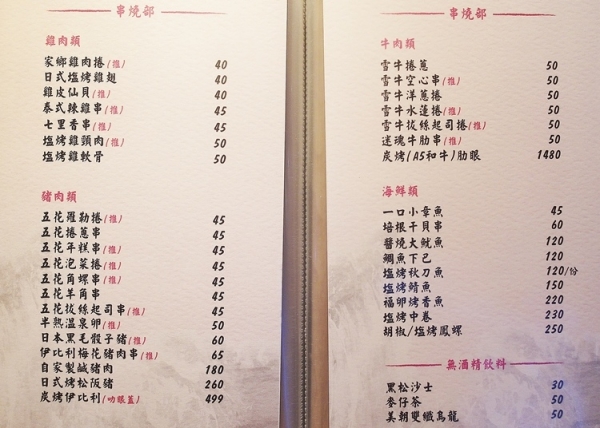 串燒部
雞肉類
家鄉雞肉捲(推) 40
日式塩烤雞翅 40
雞皮仙貝(推) 40
泰式辣雞串(推) 45
七里香串(推) 45
塩烤雞頸肉(推) 50
塩烤雞軟骨 50
豬肉類
五花羅勒捲(推) 45
五花捲蔥串 45
五花年糕串(推) 45
五花泡菜捲(推) 45
五花角螺串(推) 45
五花羊角串 45
五花拔絲起司串(推) 45
半熟溫泉卵(推) 50
日本黑毛骰子豬(推) 60
伊比利梅花豬肉串(推) 65
自家製鹹豬肉 180
日式烤松阪豬 260
炭烤伊比利(肋眼蓋) 499
串燒部
牛肉類
雪牛捲蔥 50
雪牛空心串(推) 50
雪牛洋蔥捲 50
雪牛水蓮捲(推) 50
雪牛拔絲起司捲(推) 50
迷魂牛肋串(推) 50
炭烤(A5和牛)肋眼 1480
海鮮類
一口小章魚 45
培根干貝串 60
醬燒大魷魚 120
鯛魚下巴 120
塩烤秋刀魚 120/份
塩烤鯖魚 150
福卵烤香魚 220
塩烤中卷 230
胡椒/塩烤鳳螺 250
無酒精飲料
黑松沙士 30
麥仔茶 50
美朝雙纖烏龍 50